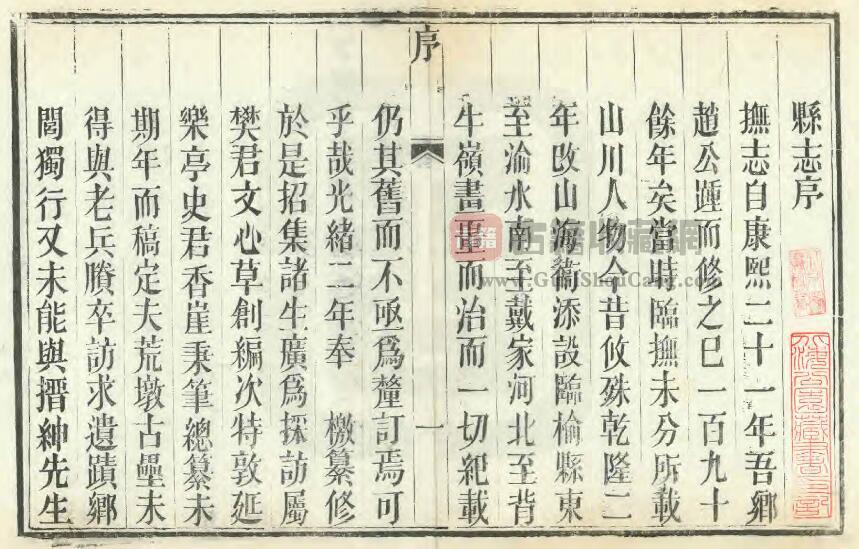 縣志序
撫志自康熙二十一年吾鄉
趙公踵而修之已一百九十
餘年矣當時臨撫未分所載
山川人物今昔攸殊乾隆二
年改山海衛添設臨榆縣東
至渝水南至戴家河北至背
牛嶺畫畺而治而一切紀載
序
一
仍其舊而不亟爲釐訂焉可
乎哉光緒二年奉　檄纂修
於是招集諸生廣爲採訪屬
樊君文心草創編次特敦延
樂亭史君香崖秉筆總纂未
期年而稿定夫荒墩古壘未
得與老兵賸卒訪求遺蹟鄉
閭獨行又未能與搢紳先生
古籍收藏網
www.GuJiShouCang.com